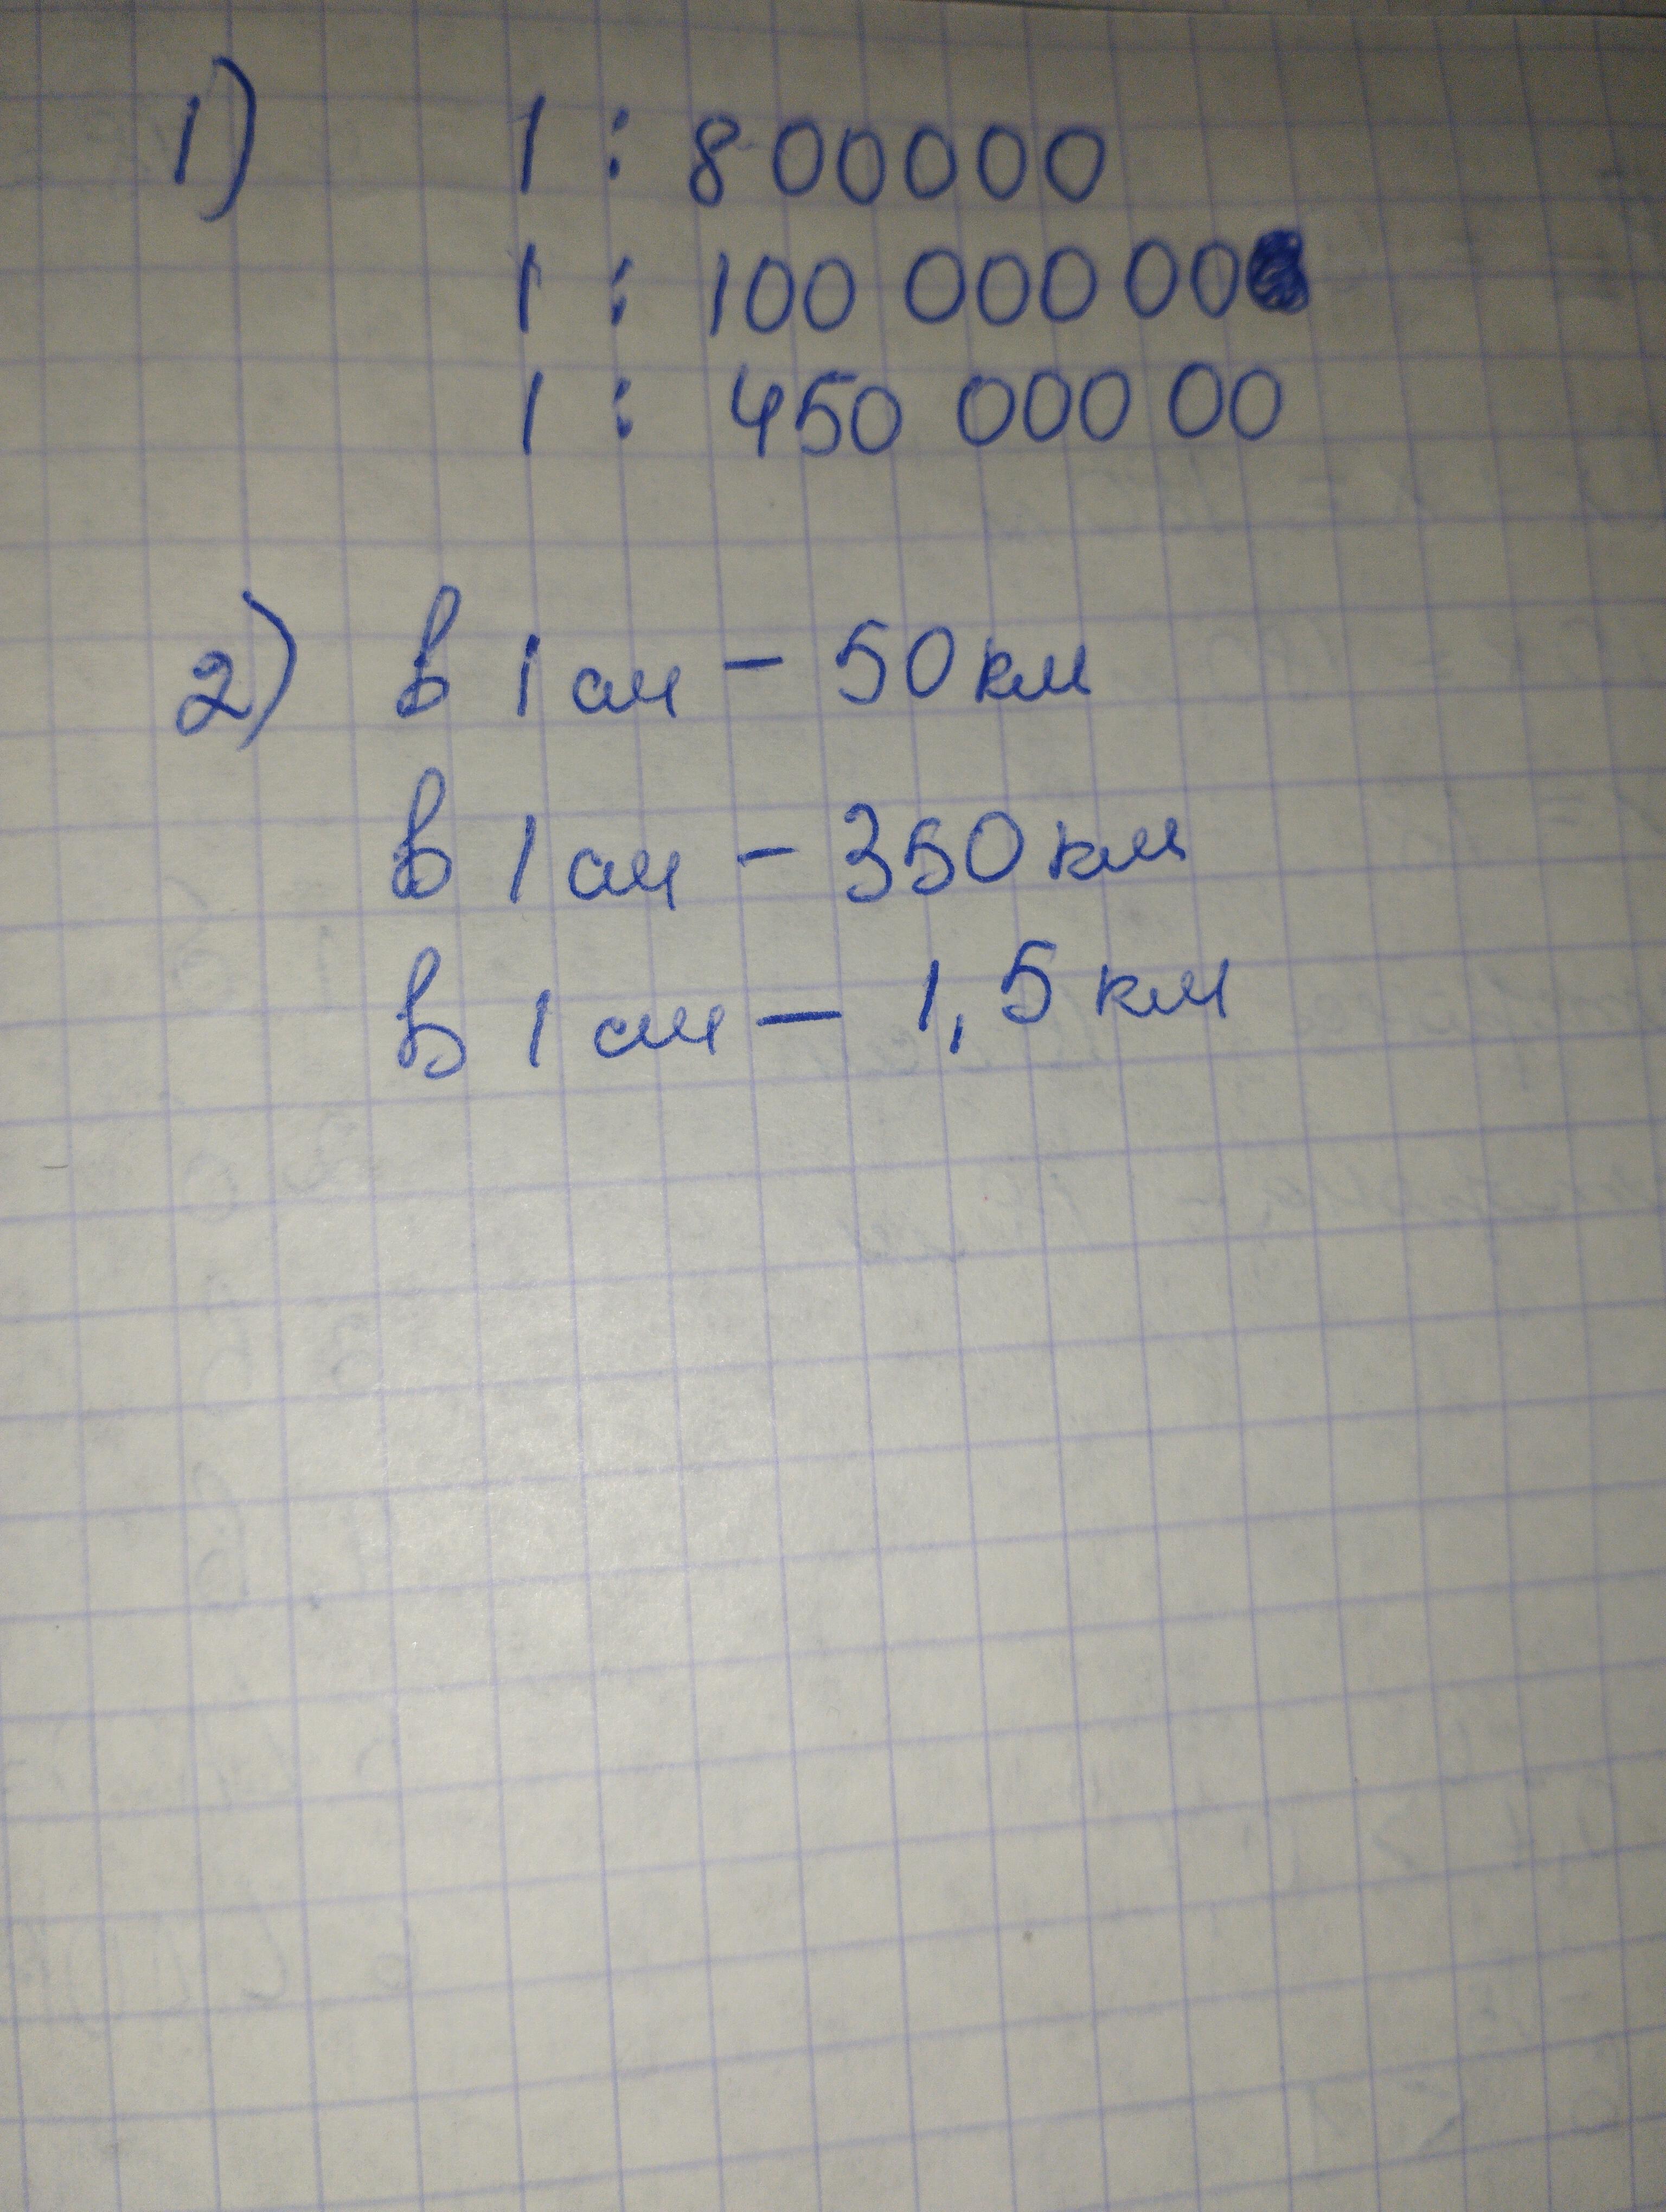 1) 1 : 800000
1 : 100 000 00
1 : 450 000 00
2) в 1 см – 50 км
в 1 см – 350 км
в 1 см – 1,5 км